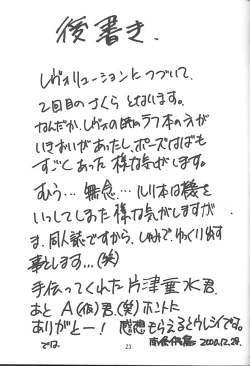 後書き.
レヴォリューションにつづいて、
2回目のさくら となります。
なんだか、レヴォの時のラフ本の方が
いきおいがあったし、ポーズはばも
すごくあった 様な気がします。
むう…無念… ルリ本は機を
いっしてしまった様な気がしますが
ま、同人誌ですから、しゅみでゆっくり出す
事とします…(笑)
手伝ってくれた片津垂水君.
あと A(仮)君.(笑) ホントに
ありがとー! 感想もらえるとウレシイです。
では。
2000.12.29.
23